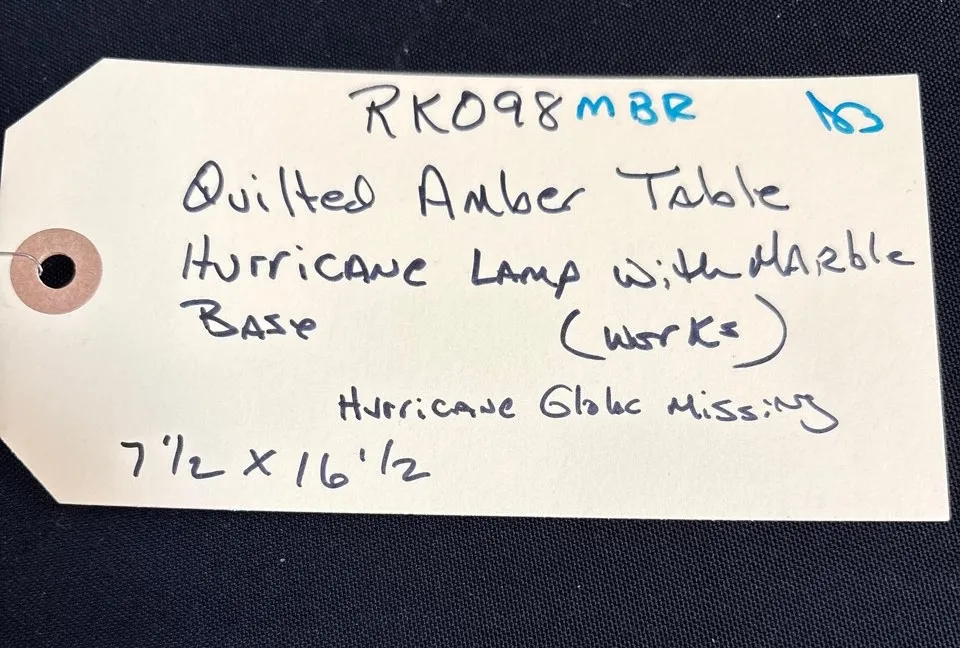 RK098 MBR
Quilted Amber Table
Hurricane Lamp with Marble
Base (works)
Hurricane Globe Missing
7 1/2 x 16 1/2